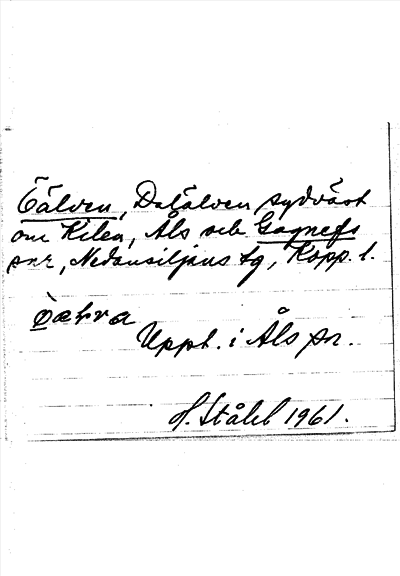 Öälven, Dalälven sydväst
om Kilen, Åls och Gagnefs
snr, Nedansiljans tg, Kopp. l.
Uppt. i Åls sn.
H. Ståhl 1961.